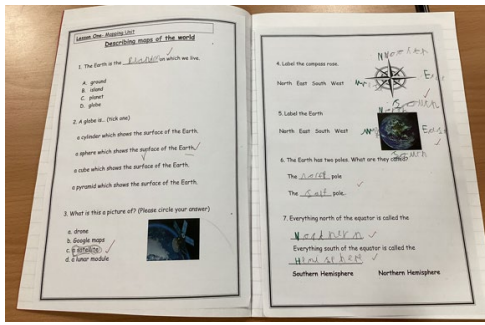 Lesson One- Mapping Unit
Describing maps of the world
1. The Earth is the planet on which we live.
A. ground
B. island
C. planet
D. globe
2. A globe is.. (tick one)
a cylinder which shows the surface of the Earth.
a sphere which shows the surface of the Earth.
a cube which shows the surface of the Earth.
a pyramid which shows the surface of the Earth.
3. What is this a picture of? (Please circle your answer)
a. drone
b. Google maps
c. a satellite
d. a lunar module
4. Label the compass rose.
North East South West
5. Label the Earth
North East South West
6. The Earth has two poles. What are they called?
The pole
The pole.
7. Everything north of the equator is called the
Everything south of the equator is called the
Southern Hemisphere Northern Hemisphere